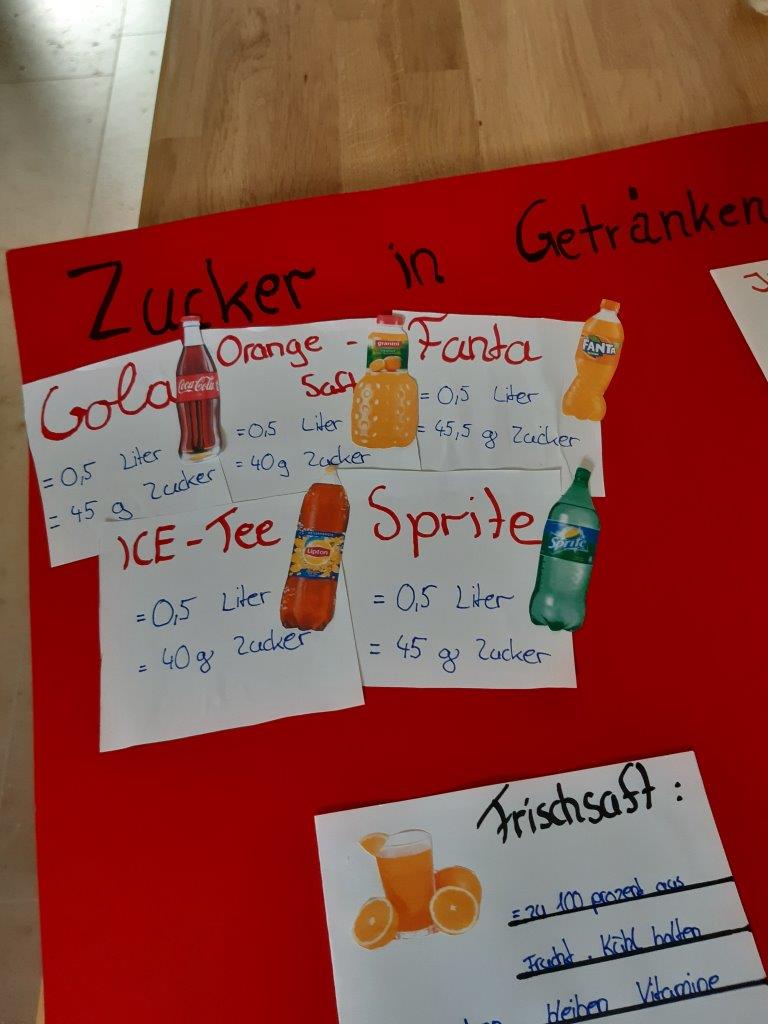 Zucker in Getränken
Cola
= 0,5 Liter
= 45 g Zucker
Coca-Cola
Orange -
Saft
=0,5 Liter
= 40g Zucker
granini
Fanta
= 0,5 Liter
= 45,5 g Zucker
FANTA
ICE-Tee
= 0,5 Liter
= 40 g Zucker
Lipton
Sprite
= 0,5 Liter
= 45 g Zucker
Sprite
Frischsaft:
= zu 100 prozent aus
Frucht. Kühl halten
bleiben Vitamine